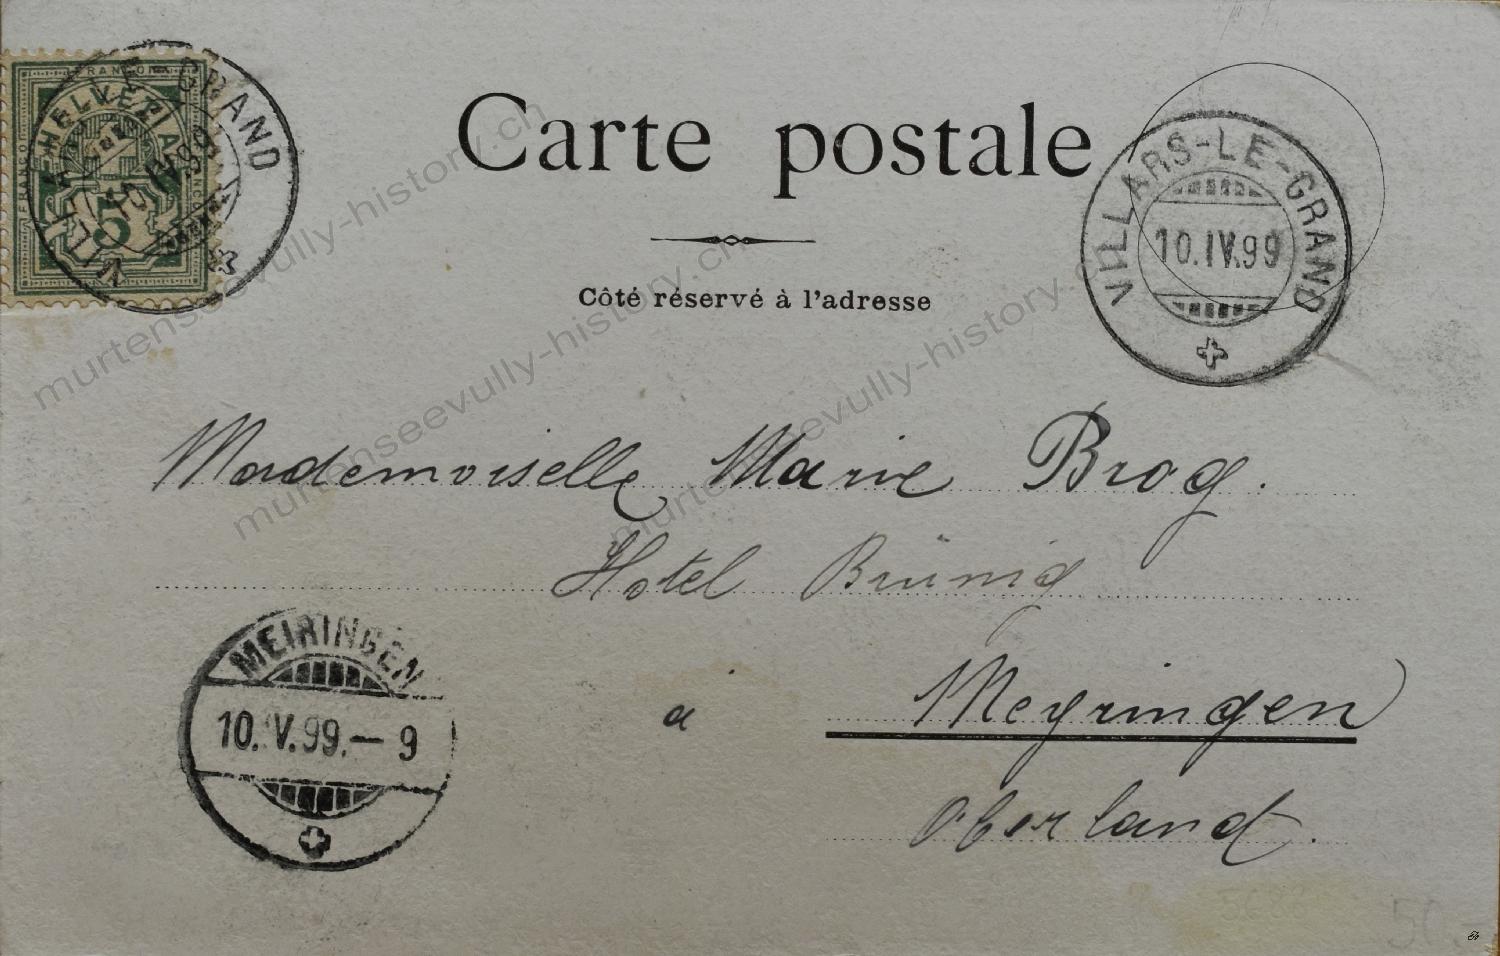 Carte postale
HELVETIA
FRANCO
5
VILLARS-LE-GRAND
10.IV.99
Côté réservé à l'adresse
Mademoiselle Marie Brog.
Hotel Brünig
MEIRINGEN
10.IV.99.— 9
à Meyringen
Oberland.
5688
50.-
murtenseevully-history.ch
murtenseevully-history.ch
murtenseevully-history.ch